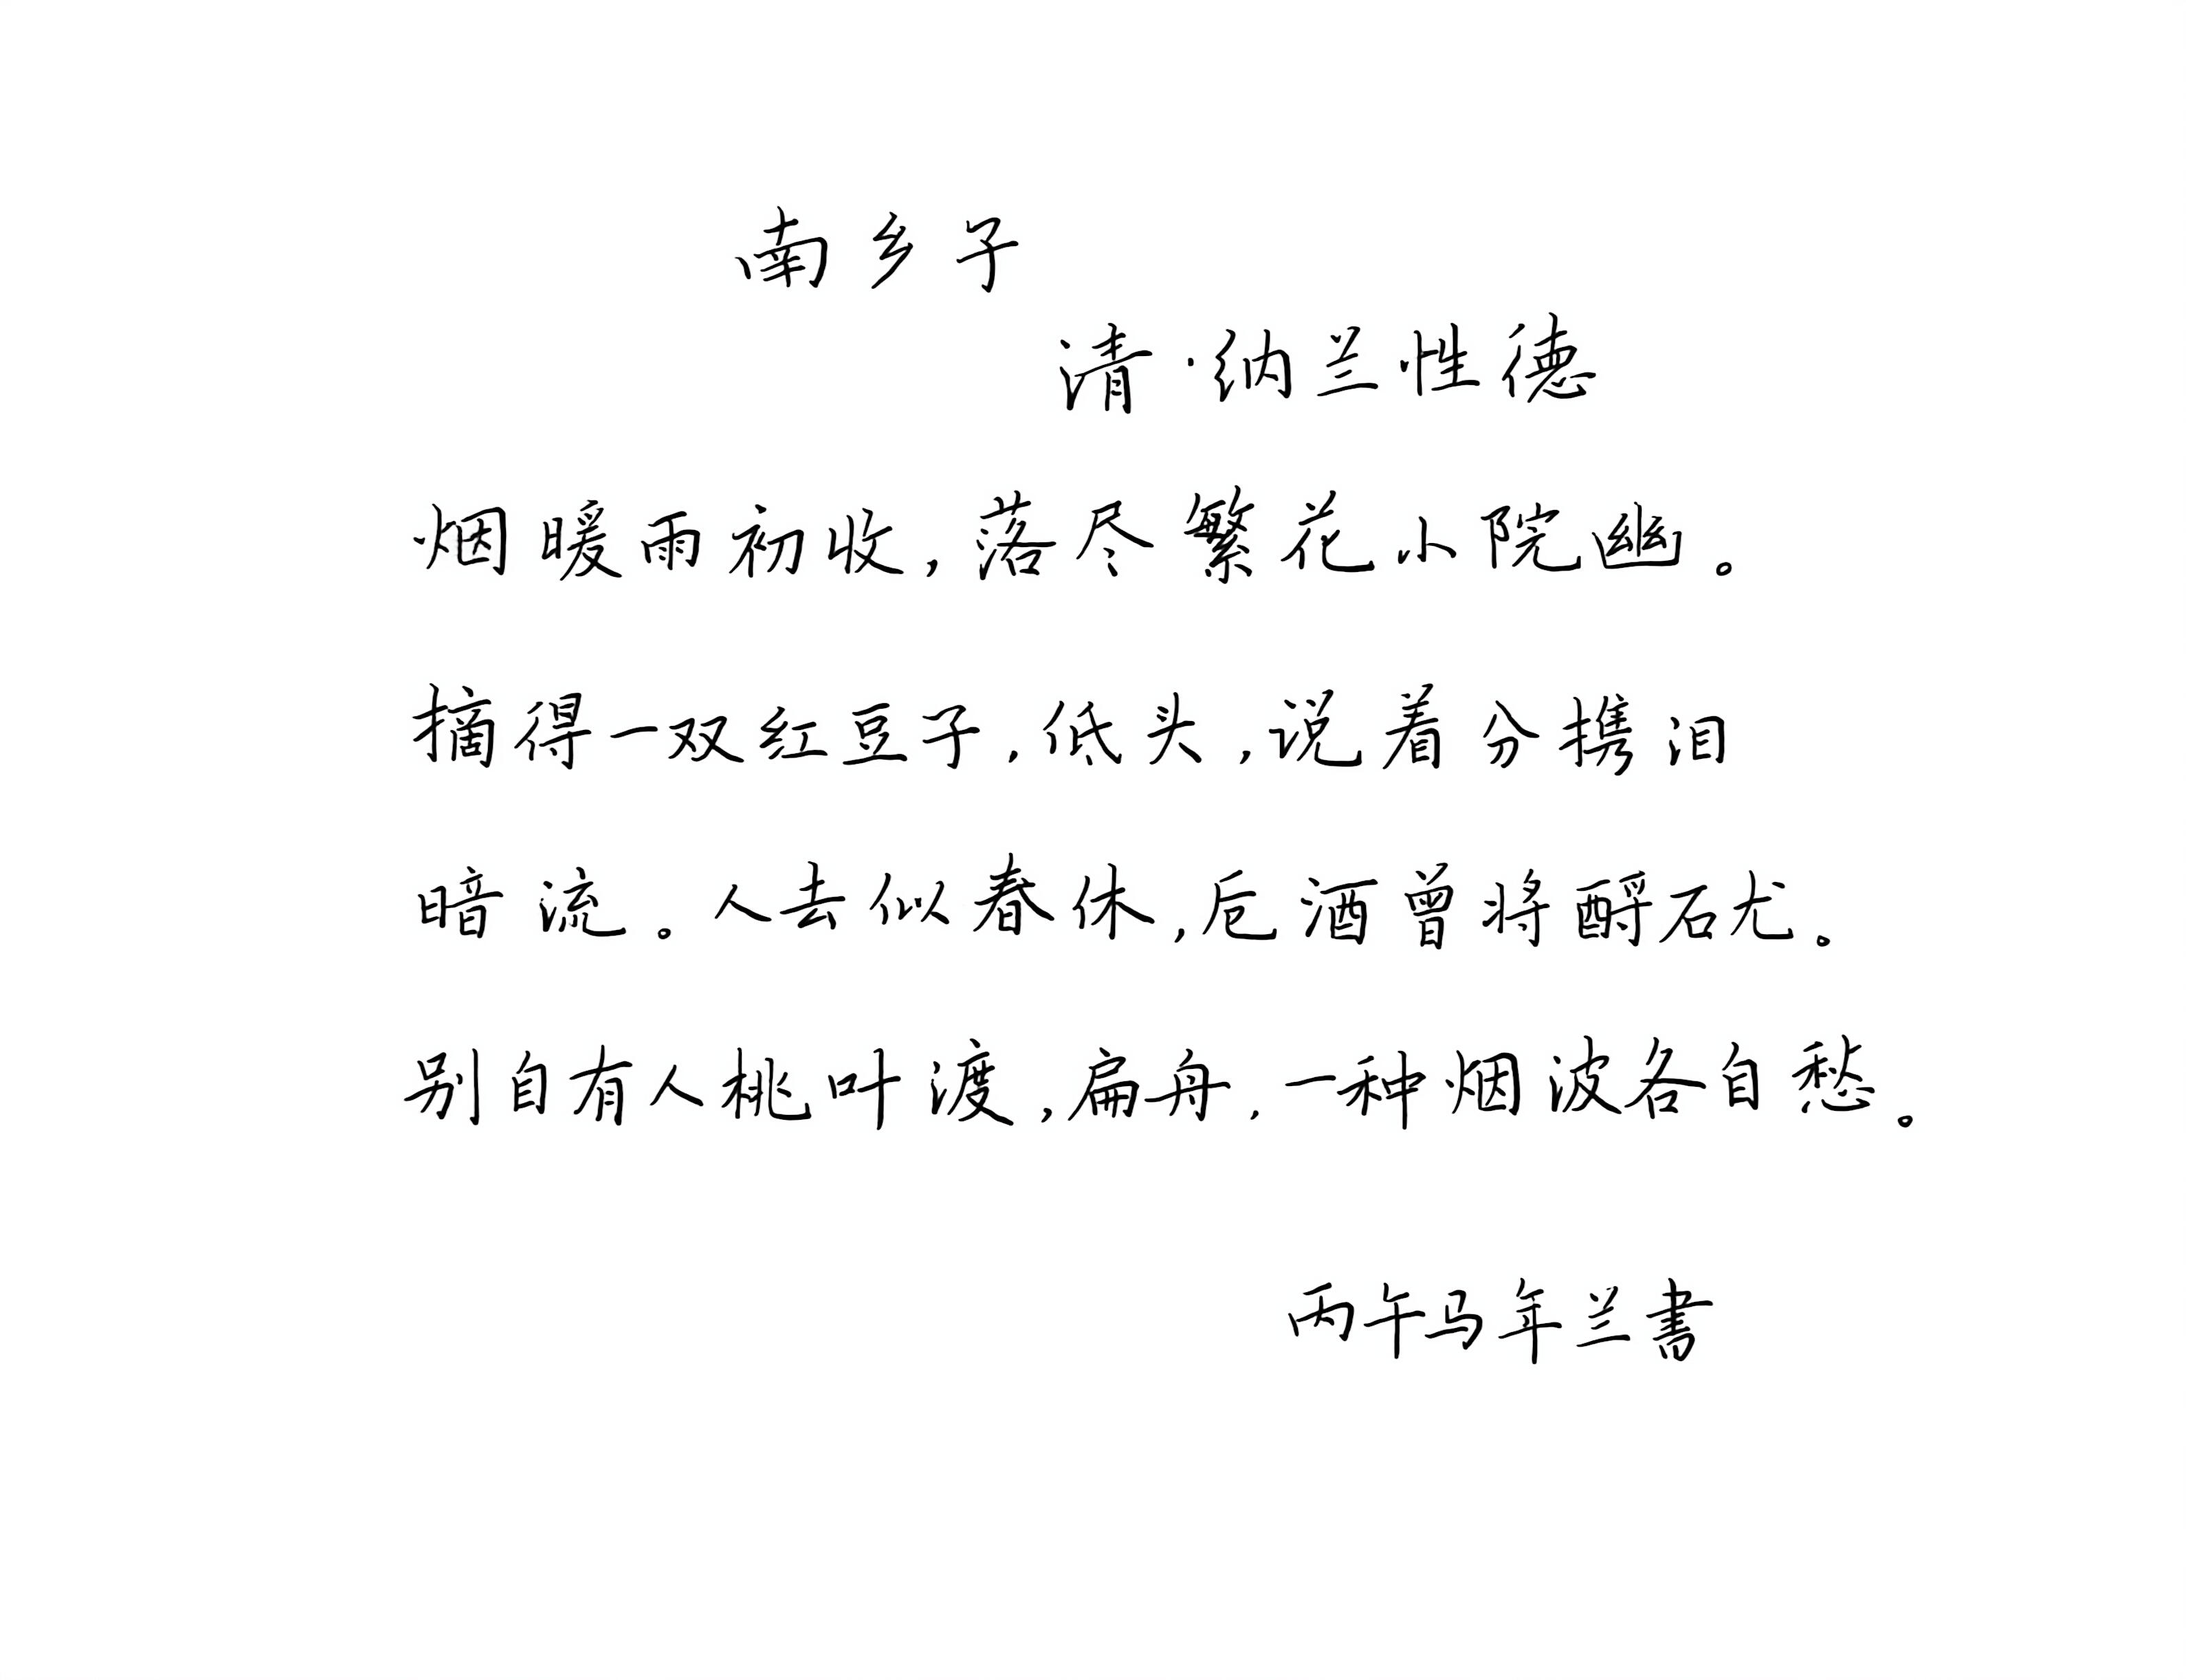 南乡子
清·纳兰性德
烟暖雨初收,落尽繁花小院幽。
摘得一双红豆子,低头,说着分携泪
暗流。人去似春休,卮酒曾将酹石尤。
别自有人桃叶渡,扁舟,一种烟波各自愁。
丙午马年兰書